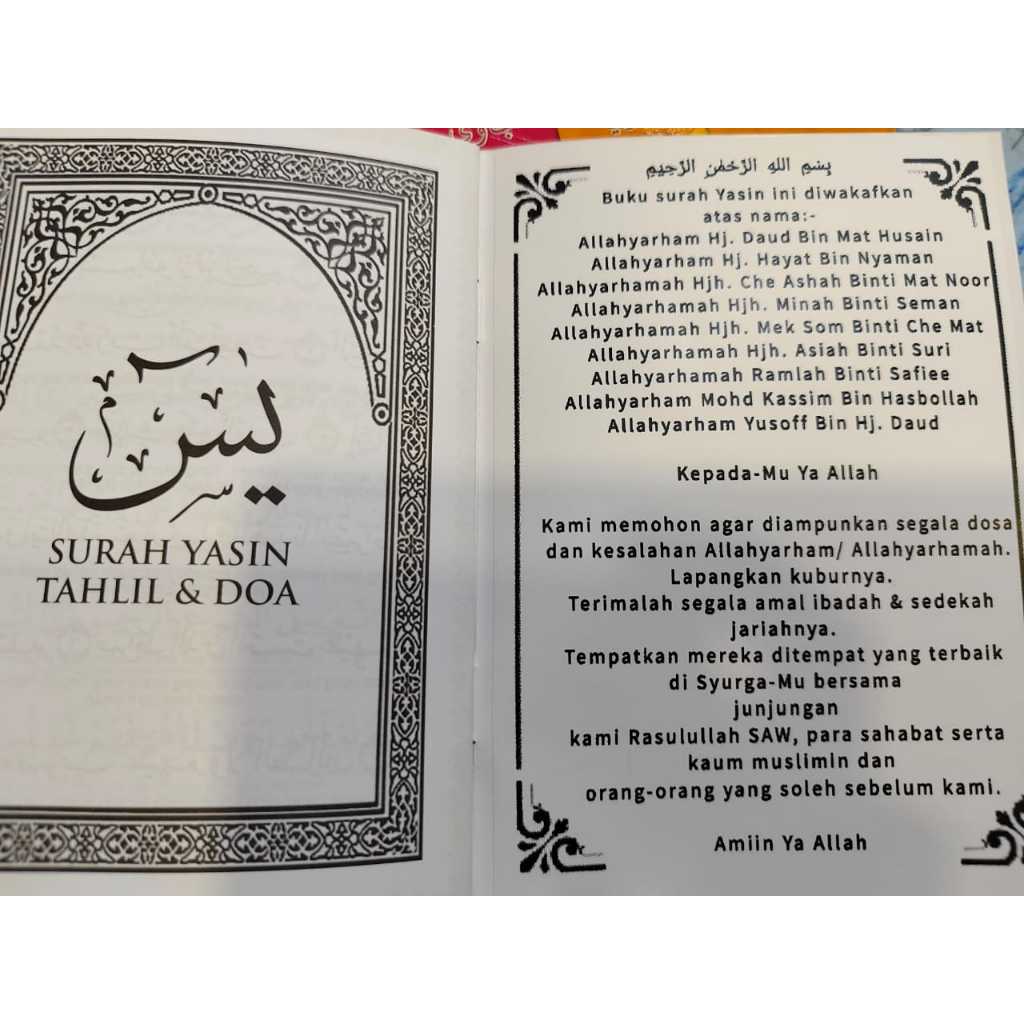 يس
SURAH YASIN
TAHLIL & DOA
بِسْمِ اللهِ الرَّحْمٰنِ الرَّحِيْمِ
Buku surah Yasin ini diwakafkan
atas nama:-
Allahyarham Hj. Daud Bin Mat Husain
Allahyarham Hj. Hayat Bin Nyaman
Allahyarhamah Hjh. Che Ashah Binti Mat Noor
Allahyarhamah Hjh. Minah Binti Seman
Allahyarhamah Hjh. Mek Som Binti Che Mat
Allahyarhamah Hjh. Asiah Binti Suri
Allahyarhamah Ramlah Binti Safiee
Allahyarham Mohd Kassim Bin Hasbollah
Allahyarham Yusoff Bin Hj. Daud
Kepada-Mu Ya Allah
Kami memohon agar diampunkan segala dosa
dan kesalahan Allahyarham/ Allahyarhamah.
Lapangkan kuburnya.
Terimalah segala amal ibadah & sedekah
jariahnya.
Tempatkan mereka ditempat yang terbaik
di Syurga-Mu bersama
junjungan
kami Rasulullah SAW, para sahabat serta
kaum muslimin dan
orang-orang yang soleh sebelum kami.
Amiin Ya Allah